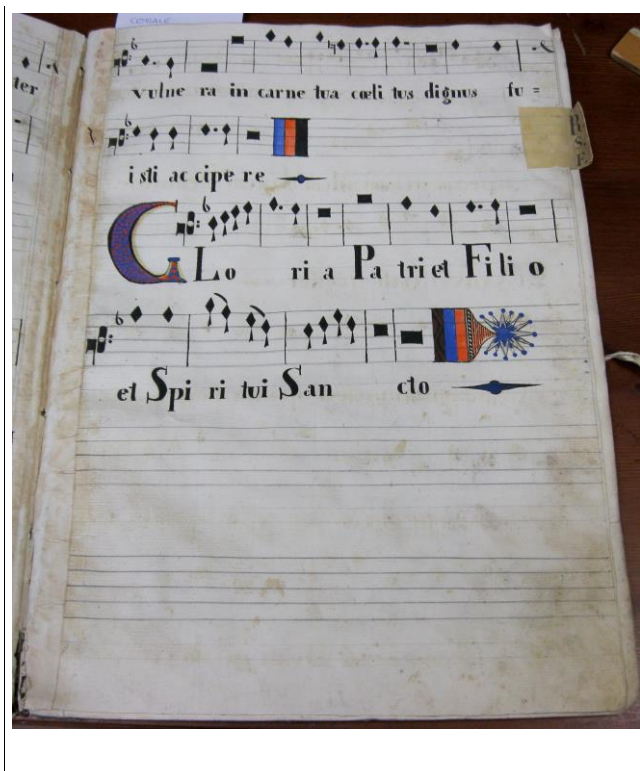 CORALE
ter
vulne ra in carne tua cœli tus dignus fu =
isti ac cipe re
GLo ri a Pa tri et Fi li o
et Spi ri tui San cto